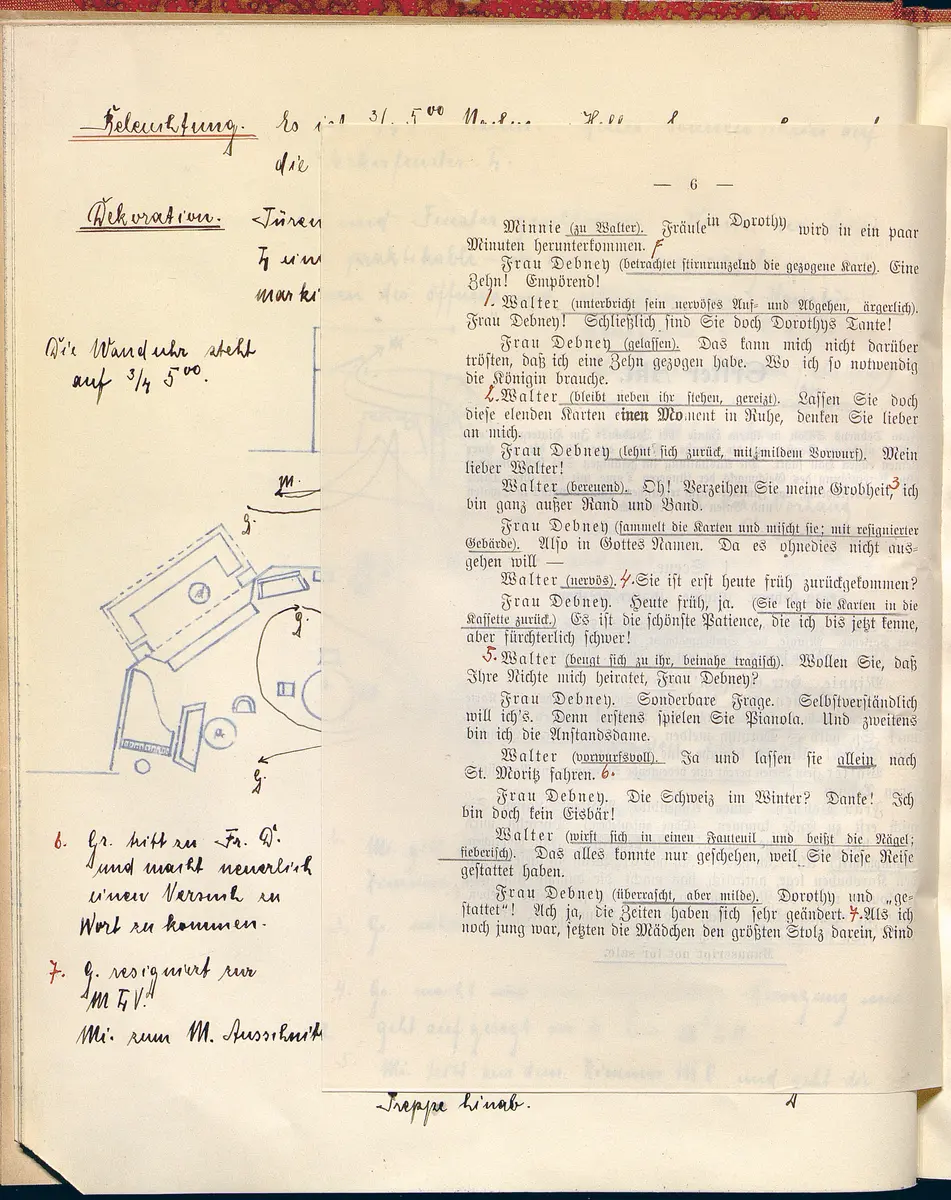 Beleuchtung. Es ist 3/4 5 00
die
Dekoration. Türen
Die Wanduhr steht
auf 3/4 5 00.
M.
G.
g.
G.
6. Gr. tritt zu Fr. D.
und macht neuerlich
einen Versuch zu
Wort zu kommen.
7. G. resigniert zur
Mi. zum M. Ausschnitt
Treppe hinab.
— 6 —
Minnie (zu Walter). Fräulein Dorothy wird in ein paar
Minuten herunterkommen.
Frau Debney (betrachtet stirnrunzelnd die gezogene Karte). Eine
Zehn! Empörend!
1. Walter (unterbricht sein nervöses Auf- und Abgehen, ärgerlich).
Frau Debney! Schließlich sind Sie doch Dorothys Tante!
Frau Debney (gelassen). Das kann mich nicht darüber
trösten, daß ich eine Zehn gezogen habe. Wo ich so notwendig
die Königin brauche.
2. Walter (bleibt neben ihr stehen, gereizt). Lassen Sie doch
diese elenden Karten einen Moment in Ruhe, denken Sie lieber
an mich.
Frau Debney (lehnt sich zurück, mit mildem Vorwurf). Mein
lieber Walter!
Walter (bereuend). Oh! Verzeihen Sie meine Grobheit, 3 ich
bin ganz außer Rand und Band.
Frau Debney (sammelt die Karten und mischt sie; mit resignierter
Gebärde). Also in Gottes Namen. Da es ohnedies nicht aus-
gehen will —
Walter (nervös). 4. Sie ist erst heute früh zurückgekommen?
Frau Debney. Heute früh, ja. (Sie legt die Karten in die
Kassette zurück.) Es ist die schönste Patience, die ich bis jetzt kenne,
aber fürchterlich schwer!
5. Walter (beugt sich zu ihr, beinahe tragisch). Wollen Sie, daß
Ihre Nichte mich heiratet, Frau Debney?
Frau Debney. Sonderbare Frage. Selbstverständlich
will ich's. Denn erstens spielen Sie Pianola. Und zweitens
bin ich die Anstandsdame.
Walter (vorwurfsvoll). Ja und lassen sie allein nach
St. Moritz fahren. 6.
Frau Debney. Die Schweiz im Winter? Danke! Ich
bin doch kein Eisbär!
Walter (wirft sich in einen Fauteuil und beißt die Nägel;
fieberisch). Das alles konnte nur geschehen, weil Sie diese Reise
gestattet haben.
Frau Debney (überrascht, aber milde). Dorothy und „ge-
stattet“! Ach ja, die Zeiten haben sich sehr geändert. 7. Als ich
noch jung war, setzten die Mädchen den größten Stolz darein, Kind